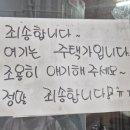 죄송합니다~
여기는 주택가입니다.
조용히 얘기해주세요~
정말 죄송합니다ㅠㅠ